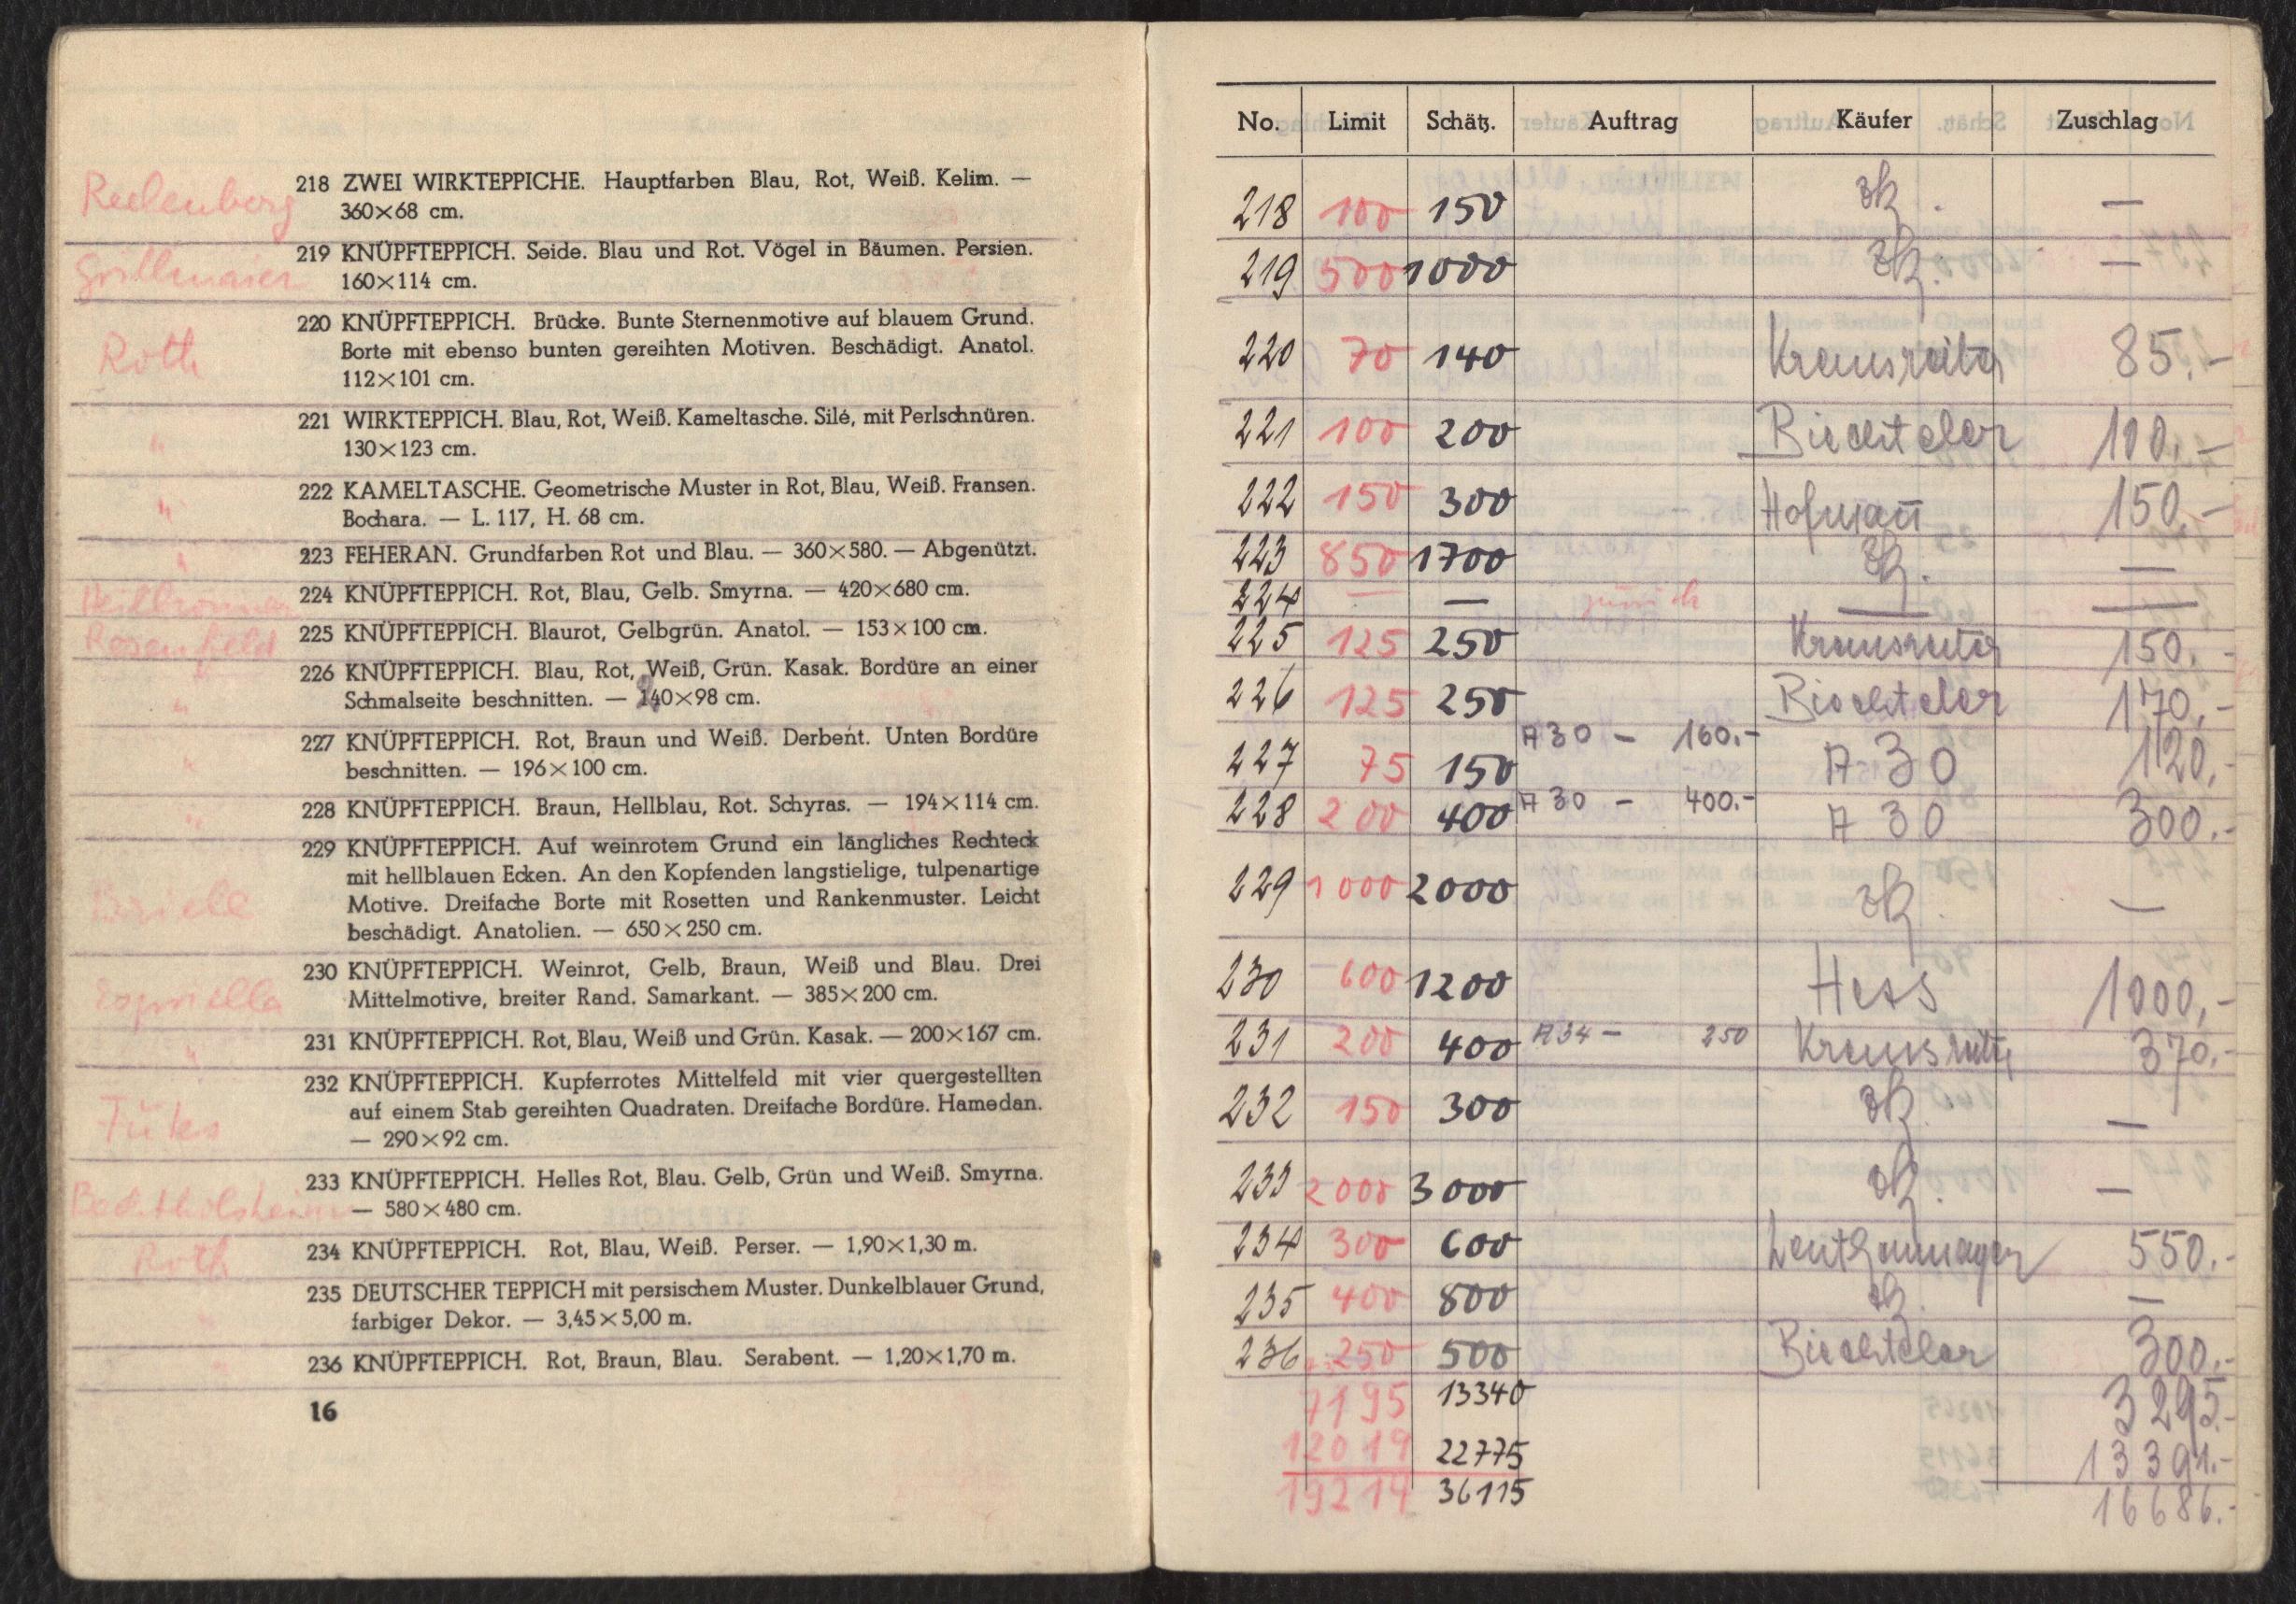 218 ZWEI WIRKTEPPICHE. Hauptfarben Blau, Rot, Weiß. Kelim. —
360×68 cm.
Grillmaier
219 KNÜPFTEPPICH. Seide. Blau und Rot. Vögel in Bäumen. Persien.
160×114 cm.
Roth
220 KNÜPFTEPPICH. Brücke. Bunte Sternenmotive auf blauem Grund.
Borte mit ebenso bunten gereihten Motiven. Beschädigt. Anatol.
112×101 cm.
"
221 WIRKTEPPICH. Blau, Rot, Weiß. Kameltasche. Silé, mit Perlschnüren.
130×123 cm.
"
222 KAMELTASCHE. Geometrische Muster in Rot, Blau, Weiß. Fransen.
Bochara. — L. 117, H. 68 cm.
"
223 FEHERAN. Grundfarben Rot und Blau. — 360×580. — Abgenützt.
Heilbronner
224 KNÜPFTEPPICH. Rot, Blau, Gelb. Smyrna. — 420×680 cm.
Rosenfeld
225 KNÜPFTEPPICH. Blaurot, Gelbgrün. Anatol. — 153×100 cm.
"
226 KNÜPFTEPPICH. Blau, Rot, Weiß, Grün. Kasak. Bordüre an einer
Schmalseite beschnitten. — 140×98 cm.
"
227 KNÜPFTEPPICH. Rot, Braun und Weiß. Derbent. Unten Bordüre
beschnitten. — 196×100 cm.
"
228 KNÜPFTEPPICH. Braun, Hellblau, Rot. Schyras. — 194×114 cm.
229 KNÜPFTEPPICH. Auf weinrotem Grund ein längliches Rechteck
mit hellblauen Ecken. An den Kopfenden langstielige, tulpenartige
Motive. Dreifache Borte mit Rosetten und Rankenmuster. Leicht
beschädigt. Anatolien. — 650×250 cm.
230 KNÜPFTEPPICH. Weinrot, Gelb, Braun, Weiß und Blau. Drei
Mittelmotive, breiter Rand. Samarkant. — 385×200 cm.
"
231 KNÜPFTEPPICH. Rot, Blau, Weiß und Grün. Kasak. — 200×167 cm.
232 KNÜPFTEPPICH. Kupferrotes Mittelfeld mit vier quergestellten
auf einem Stab gereihten Quadraten. Dreifache Bordüre. Hamedan.
— 290×92 cm.
233 KNÜPFTEPPICH. Helles Rot, Blau. Gelb, Grün und Weiß. Smyrna.
— 580×480 cm.
Roth
234 KNÜPFTEPPICH. Rot, Blau, Weiß. Perser. — 1,90×1,30 m.
"
235 DEUTSCHER TEPPICH mit persischem Muster. Dunkelblauer Grund,
farbiger Dekor. — 3,45×5,00 m.
"
236 KNÜPFTEPPICH. Rot, Braun, Blau. Serabent. — 1,20×1,70 m.
16
No. Limit Schätz. Auftrag Käufer Zuschlag
218 100 150 zk. —
219 500 1000 zk. —
220 70 140 Krausreiter 85.-
221 100 200 Biechteler 100.-
222 150 300 Hofmann 150.-
223 850 1700 zk. —
224 — — zurück — —
225 125 250 Krausreiter 150.-
226 125 250 Biechteler 170.-
227 75 150 A 30 - 160.- A 30 120.-
228 200 400 A 30 - 400.- A 30 300.-
229 1000 2000 zk. —
230 600 1200 Hess 1000,-
231 200 400 A 34 - 250 Krausreiter 370.-
232 150 300 zk. —
233 2000 3000 zk. —
234 300 600 550.-
235 400 800 zk. —
236 250 500 Biechteler 300.-
7195 13340 3295.-
12019 22775 13391.-
19214 36115 16686.-